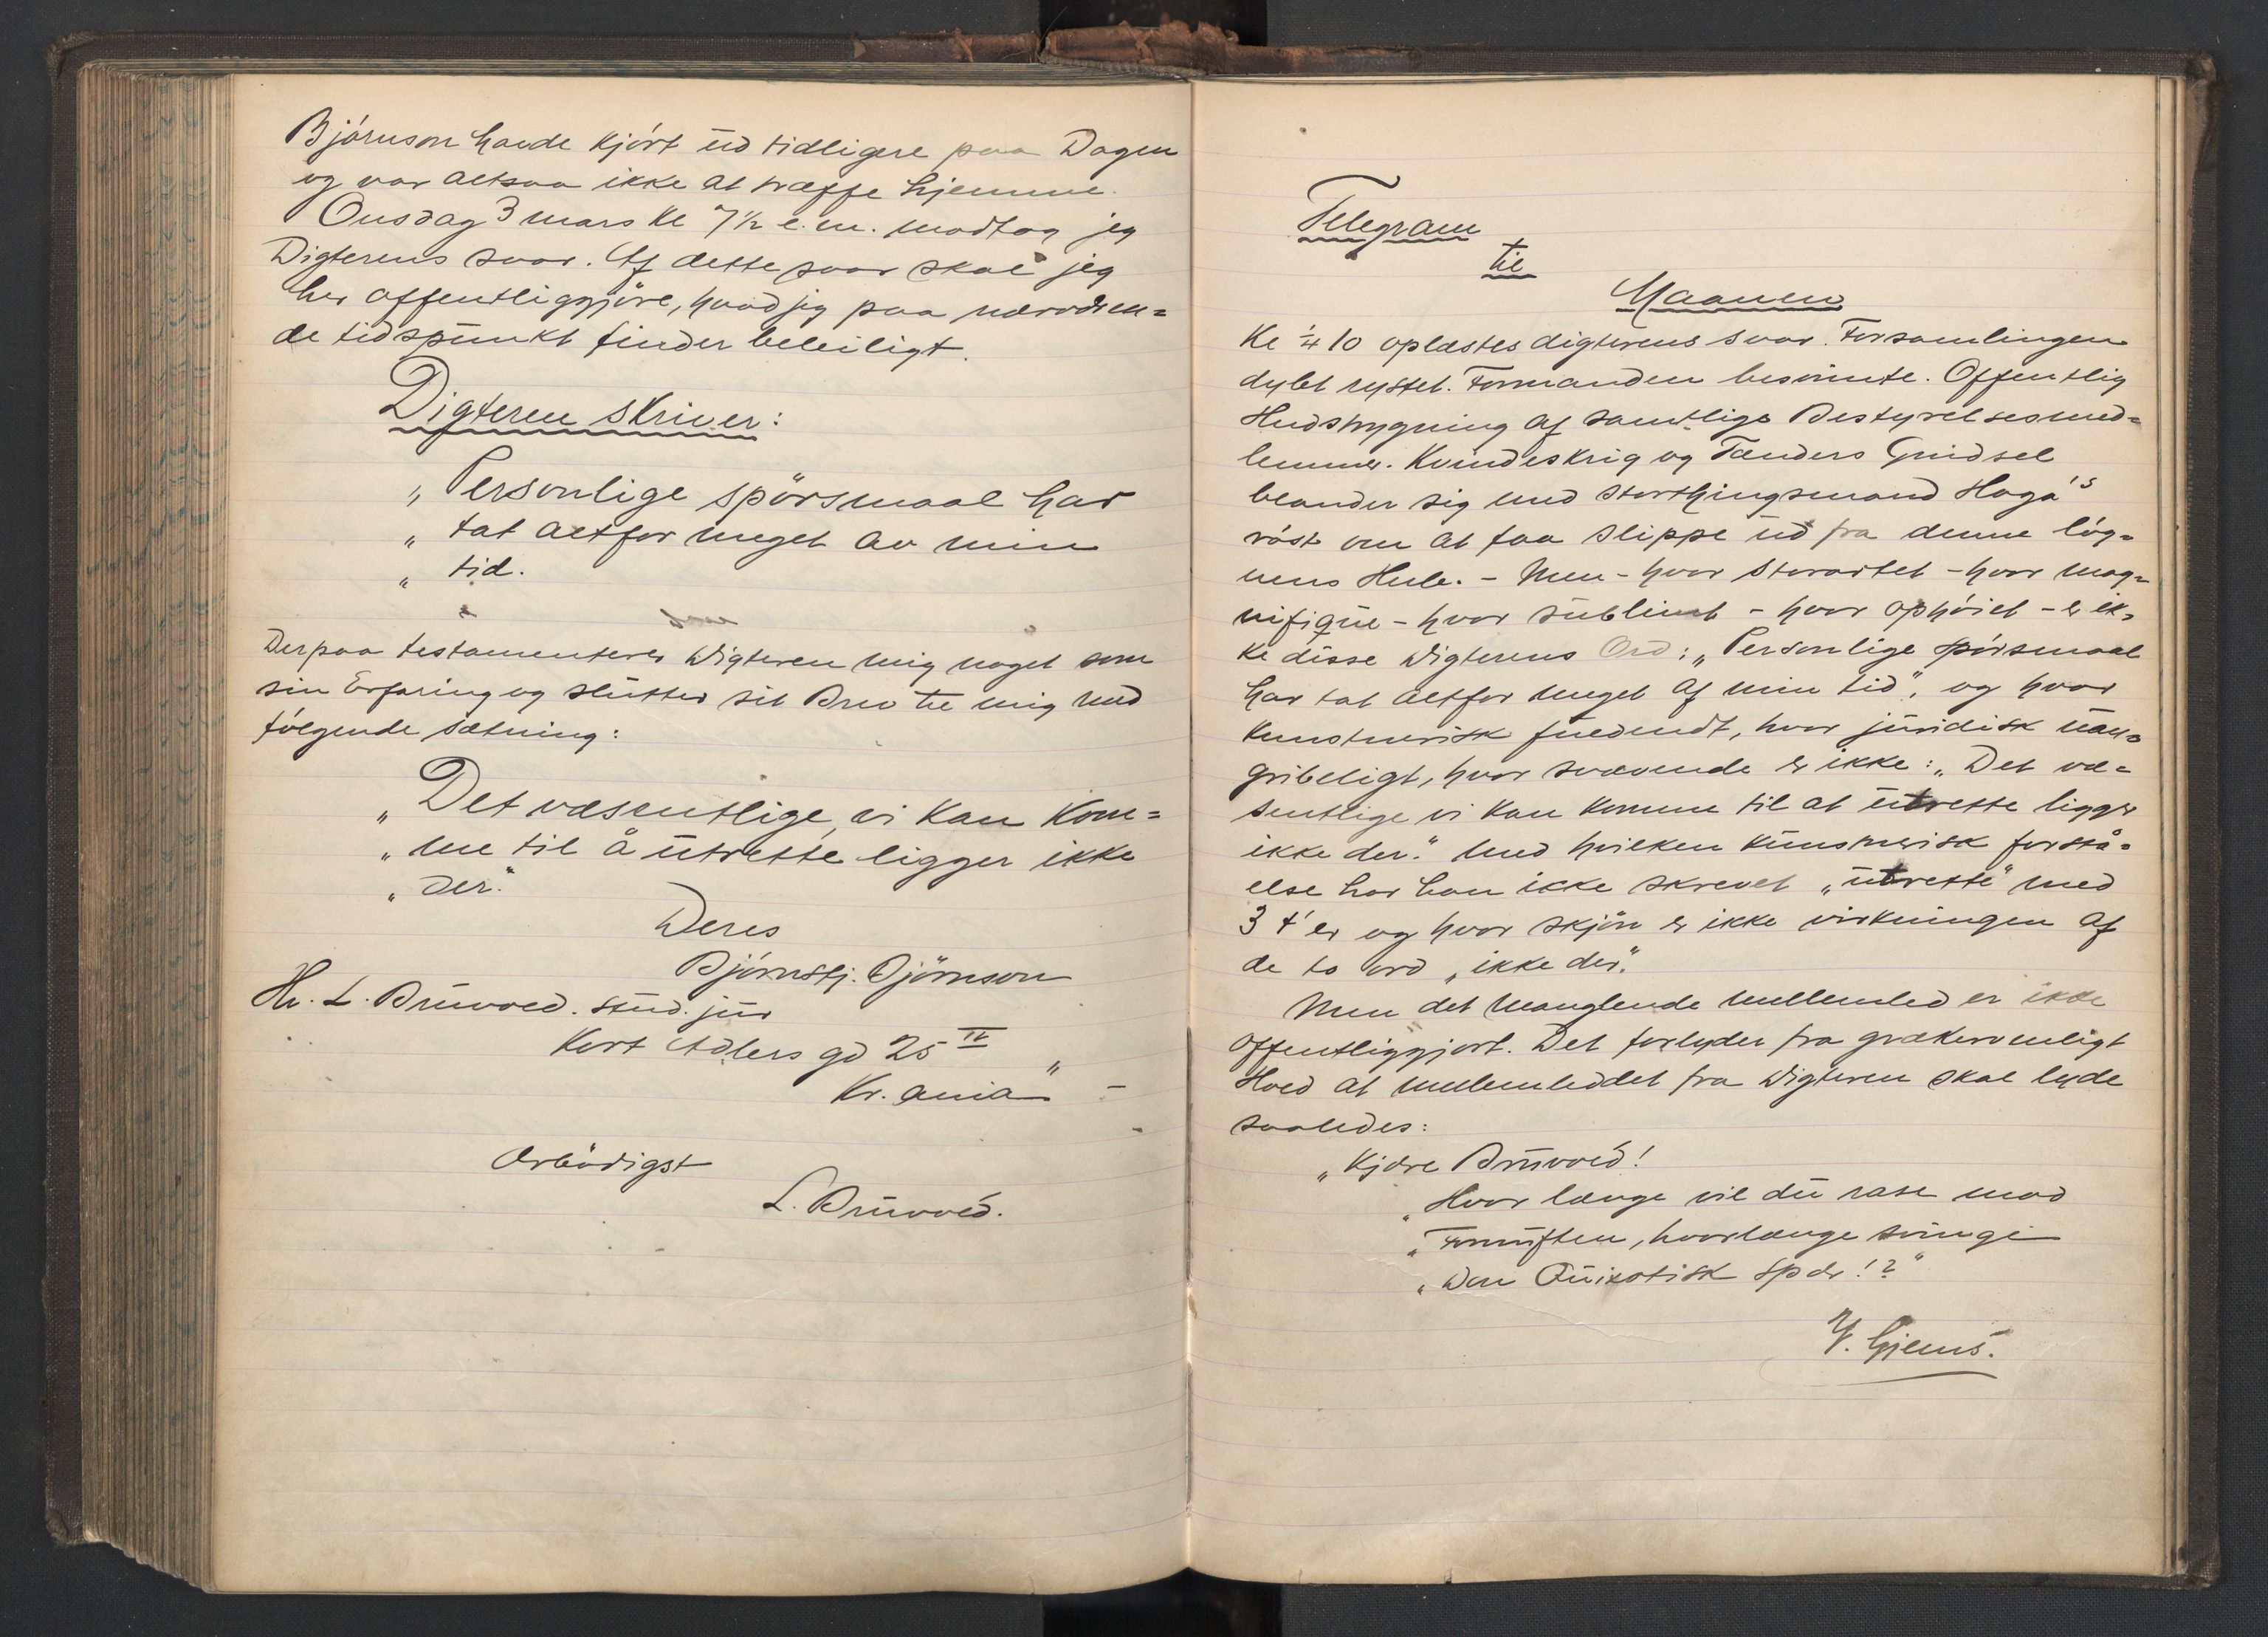 Björnson havde kjört ud tidligere paa Dagen
og var altsaa ikke at træffe hjemme.
Onsdag 3 mars Kl 7½ e.m. modtog jeg
Digterens svar. Af dette svar skal jeg
her offentliggjöre, hvad jeg paa nærværen=
de tidspunkt finder beleiligt.
Digteren skriver:
„ Personlige spörsmaal har
„ tat altfor meget av min
„ tid.
Derpaa testamenterer Digteren mig noget som
sin Erfaring og slutter sit Brev til mig med
følgende sætning:
„ Det væsentlige, vi kan kom=
„ me til å utrette ligger ikke
„ der."
Deres
Björnstj. Björnson
Hr. L. Bruvold. stud. jur
Kort Adlers gd 25 IV
Kr.ania" –
Ærbödigst
L. Bruvold.
Telegram
til
Maanen
Kl ¼ 10 oplæstes digterens svar. Forsamlingen
dybt rystet. Formanden besvimte. Offentlig
Hudstrygning af samtlige Bestyrelsesmed=
lemmer. Kvindeskrig og Tænders Gnidsel
blander sig med Storthingsmand Haga's
röst om at faa slippe ud fra denne lög=
nens Hule. – Men – hvor storartet – hvor mag=
nifique – hvor sublimt – hvor ophöiet – er ik=
ke disse Digterens Ord: „Personlige spörsmaal
har tat altfor meget af min tid", og hvor
kunstnerisk fuldendt, hvor juridisk uan=
gribeligt, hvor svævende er ikke: „Det væ=
sentlige vi kan komme til at utrette ligger
ikke der." Med hvilken kunstnerisk forstå=
else har han ikke skrevet „utrette" med
3 t'er og hvor skjön er ikke virkningen af
de to ord „ikke der".
Men det manglende mellemled er ikke
offentliggjort. Det forlyder fra grækervenligt
Hold at mellemleddet fra Digteren skal lyde
saaledes:
„Kjære Bruvold!
„ Hvor længe vil du rase mod
„ Fornuften, hvorlænge svinge
„ Don Quixotisk spær!?"
Y. Gjems.